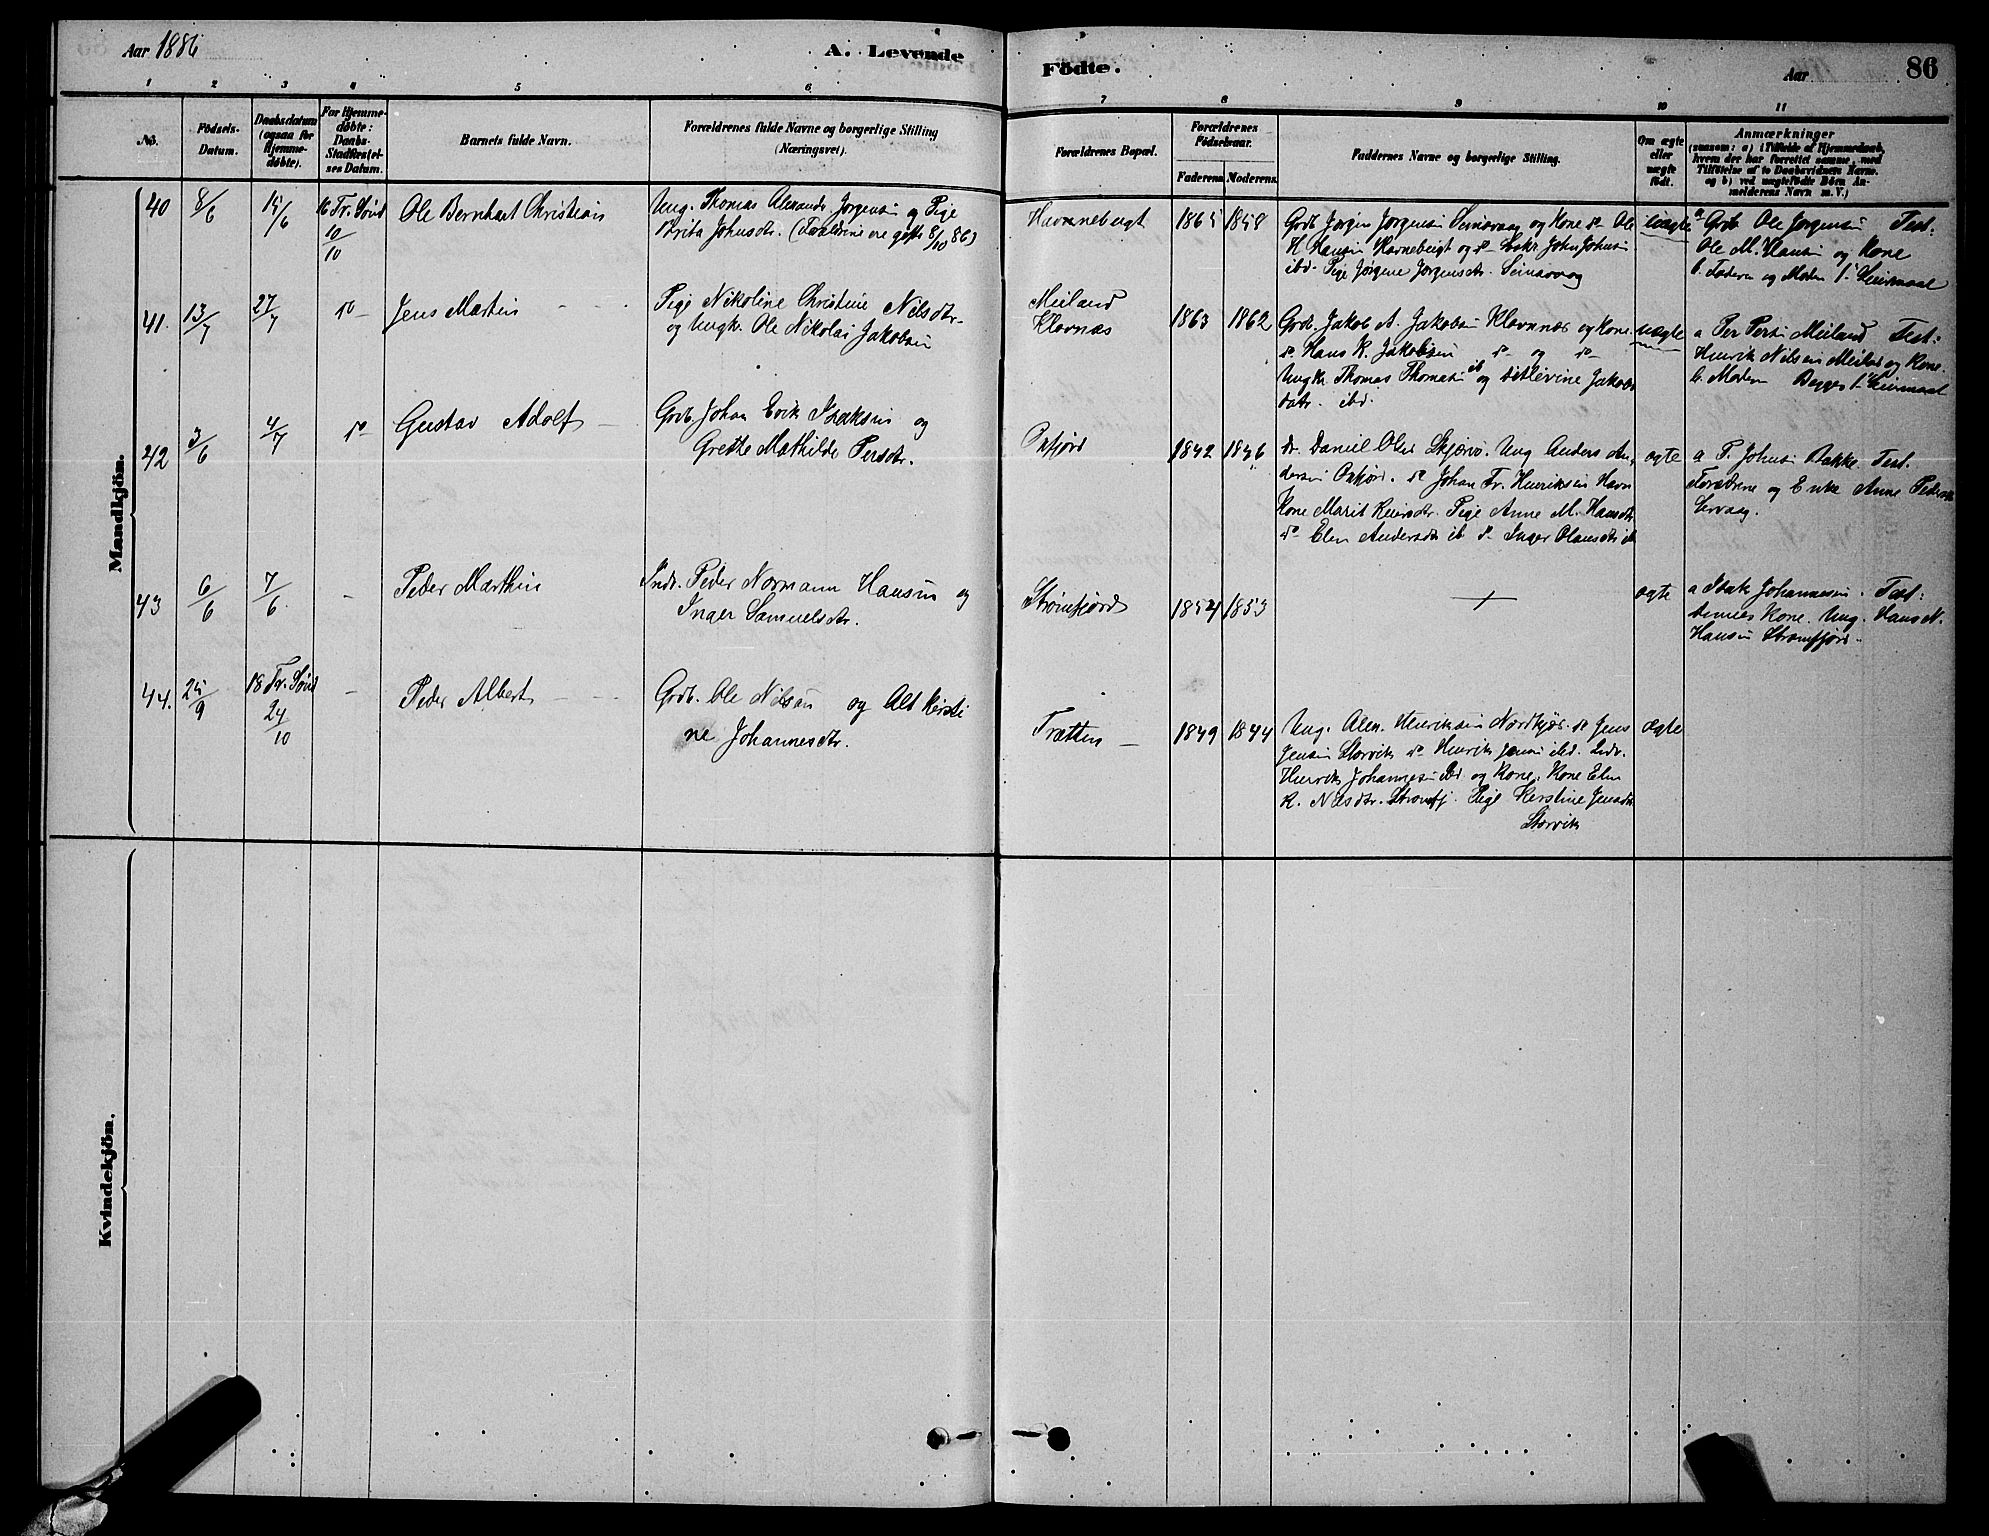 Aar 1886
A. Levende
Födte.
Aar
86
1 2 3 4 5 6 7 8 9 10 11
No.
Födsels-
Datum.
Daabsdatum
(ogsaa for
Hjemme-
døbte).
For Hjemme-
døbte:
Daabs-
Stadfæstel-
ses Datum.
Barnets fulde Navn.
Forældrenes fulde Navne og borgerlige Stilling
(Næringsvei).
Forældrenes Bopæl.
Forældrenes
Födselsaar.
Faderens. Moderens.
Faddernes Navne og borgerlige Stilling.
Om ægte
eller
uægte
født.
Anmærkninger
(saasom: a) i Tilfælde af Hjemmedaab,
hvem der har forrettet samme, med
Tilføielse af to Daabsvidners Navne.
og b) ved uægtefødte Börn An-
melderens Navn m. V.)
Mandkjön.
40 8/6 14/6 16 Tr. Sønd
10/10
Ole Bernhart Christian
Ung. Thomas Alexander Jørgensen og Pige
Brita Johnsdtr. (Forældrene ere gifte 8/10 86)
Havnnebugt
1865 1858
Grdb. Jørgen Jørgensen og Kone do Ole
H. Hansen Havnebugt og do John Johnsen
ibd. Pige Jørgine Jørgensdtr.
uægte
a Grdb Ole Jørgensen Test:
Ole M. Hansen og Kone
b. Faderen og Moder 1. Leiermaal
41. 13/7 27/7 do -
Jens Martin - -
Pige Nikoline Christine Nilsdtr
og Ungk. Ole Nikolai Jakobsen
Meiland
Klovnæs
1863 1862
Grdb. Jakob A. Jakobsen Klovnæs og Kone
do Hans K. Jakobsen do og do
Ungk. Thomas Thomasen ib og Jakobs
datr. ibd.
uægte
a Per Persen Meiland Test:
Henrik Nilsen Meiland og Kone
b. Moderen Begges 1. Leiermaal
42 3/6 4/7 do
Gustav Adolf -
Grdb. Johan Erik Isaksen og
Grethe Mathilde Persdtr.
Oxfjord
1842 1846
do Daniel Olsen Skjervø. Ung Anders An-
dersen Oxfjord. do Johan Fr. Henriksen Havn
Kone Marit Reiersdtr. Pige Anne M. Hansdtr
do Elen Andersdtr ib do Inger Olausdtr ib
ægte
a P. Johnsen Bakke. Test.
Forældrene og Enke Anne Pedersdtr
43 6/6 7/6 -
Peder Marthin
Indr. Peder Normann Hansen og
Inger Samuelsdtr.
Strømfjord
1854 1853
ægte
a Isak Johannesen. Test:
dennes Kone. Ung. Hans N.
Hansen Strømfjord.
44. 25/9 18 Tr. Sønd
24/10 -
Peder Albert - -
Grdb. Ole Nilsen og Alt Kersti
ne Johannesdtr.
Trætten -
1849 1844
Ung. Henriksen Nordkjos. do Jens
Jensen Storvik do Henrik Jensen ibd. Indr.
Henrik Johannesen ibd og Kone. Kone Elen
K. Nilsdtr. Strømfj. Pige Kerstine Jensdtr
Storvik
ægte
Kvindekjön.